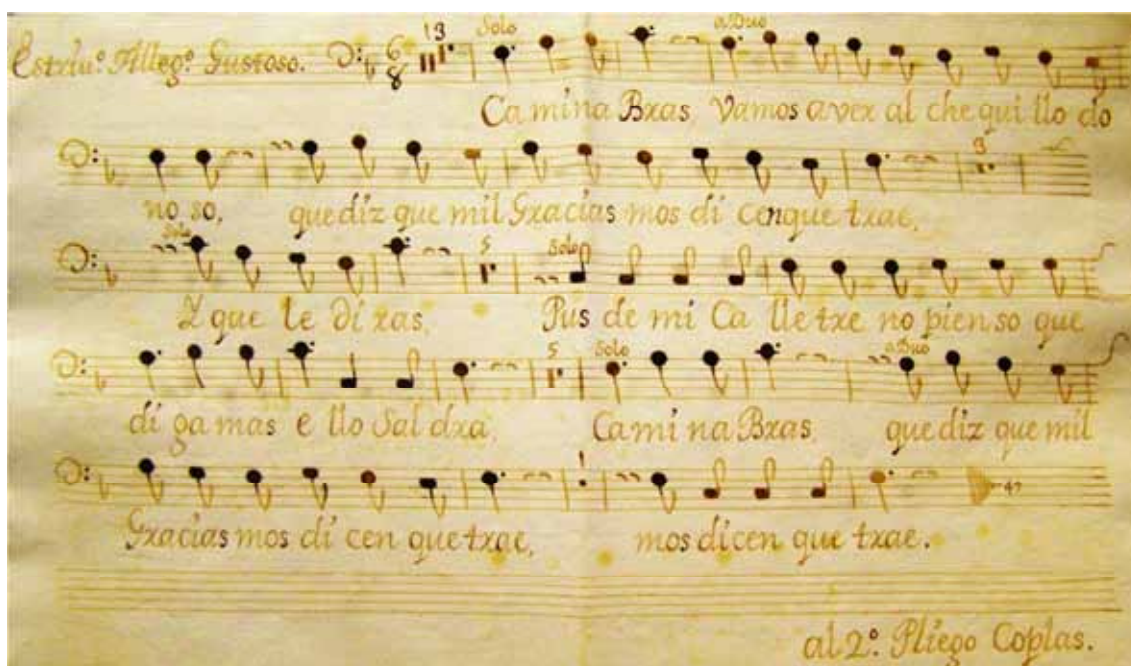 13 Solo aDuo
Estriv.º Alleg.º Gustoso. 6 8
Ca mina Bras, Vamos a ver al che qui llo do
3
no so, que diz que mil Gracias mos di cen que trae,
Solo 5 Solo
Y que le di ras, Pus de mi Ca lle tre no pien so que
5 Solo aDuo
di ga mas e llo Sal dra, Ca mi na Bras, que diz que mil
Gracias mos di cen que trae, mos dicen que trae.
al 2.º Pliego Coplas.